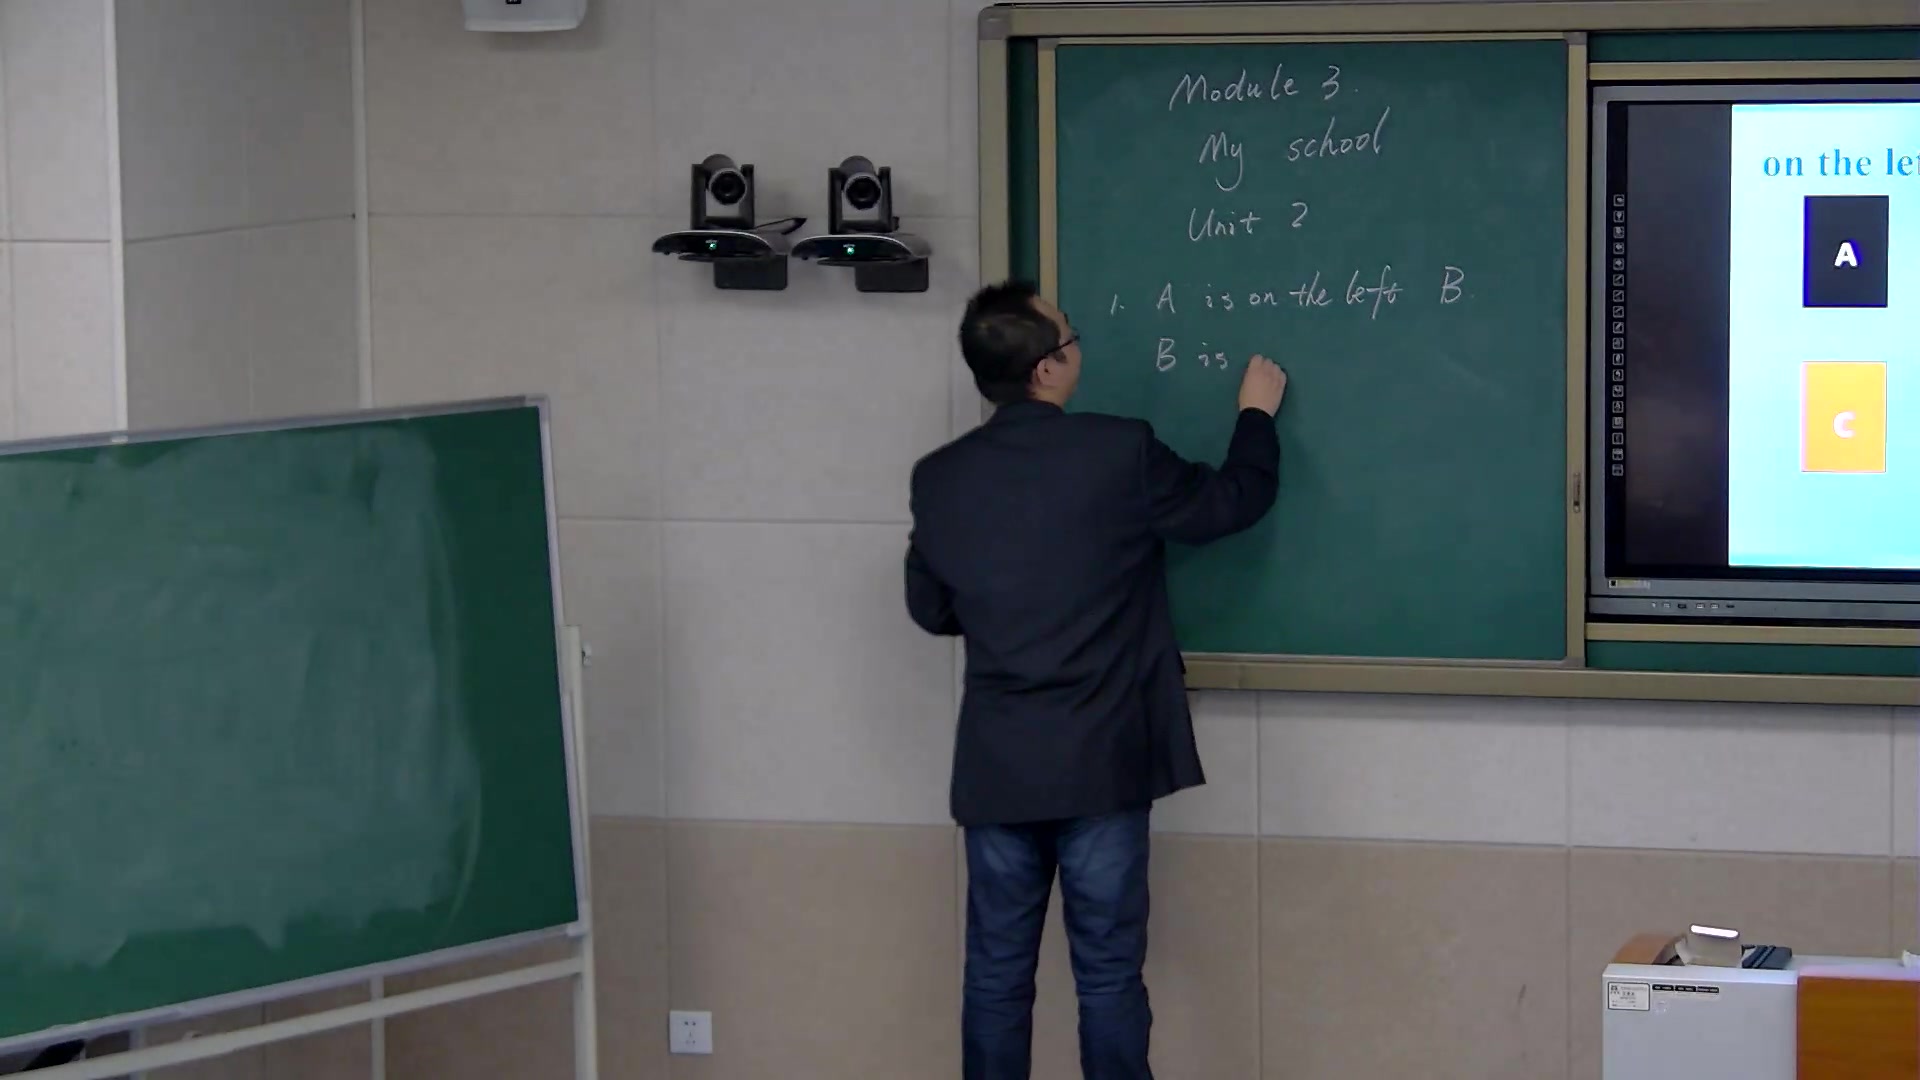 Module 3.
My school
Unit 2
1. A is on the left B.
B is
on the lef
A
C